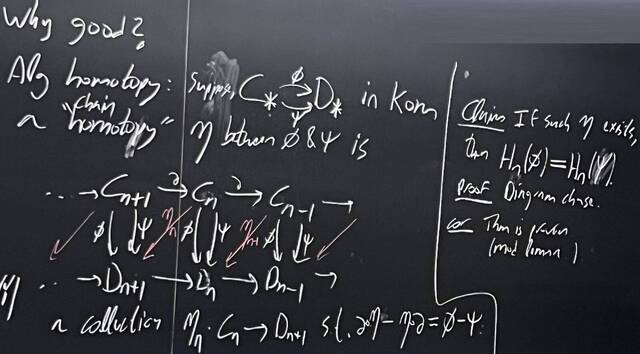 Why good?
Alg homotopy: Suppose C_* ⇉ D_* in Kom
ϕ
ψ
a "chain homotopy" η between ϕ & ψ is
... → C_{n+1} →∂ C_n →∂ C_{n-1} →
ϕ ψ η_n ϕ ψ η_{n-1} ϕ ψ
... → D_{n+1} → D_n → D_{n-1} →
a collection η_n : C_n → D_{n+1} s.t. ∂∘η - η∘∂ = ϕ - ψ
Claim If such η exists,
then H_n(ϕ) = H_n(ψ).
Proof Diagram chase.
Cor Thm is proven
(mod lemma)